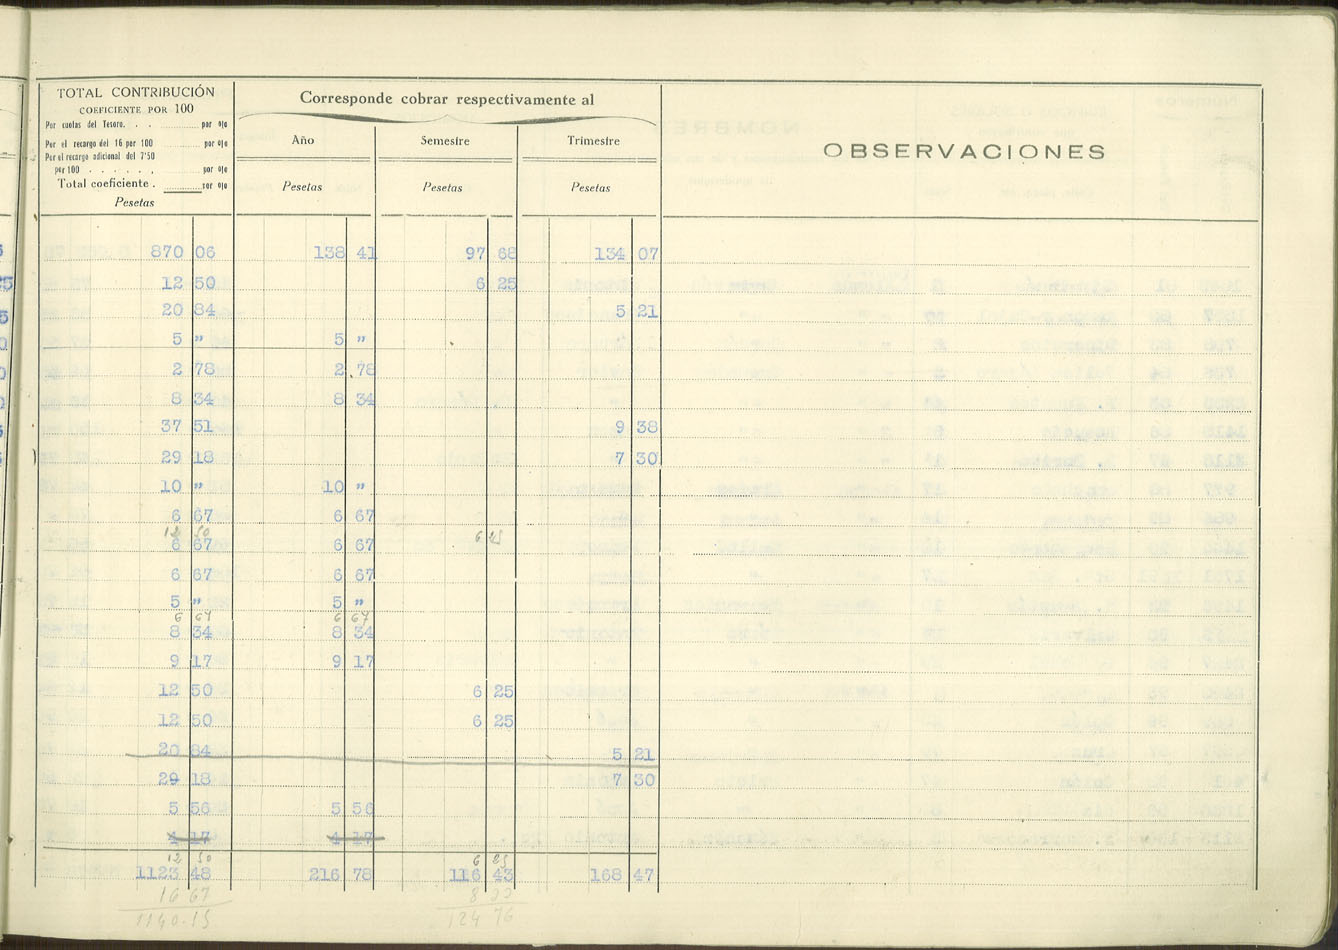 TOTAL CONTRIBUCIÓN
COEFICIENTE POR 100
Por cuotas del Tesoro. . . por 0|0
Por el recargo del 16 por 100 por 0|0
Por el recargo adicional del 7'50
por 100 . . . . . , por 0|0
Total coeficiente . por 0|0
Pesetas
Corresponde cobrar respectivamente al
Año Semestre Trimestre
Pesetas Pesetas Pesetas
OBSERVACIONES
870 06 138 41 97 68 134 07
12 50 6 25
20 84 5 21
5 " 5 "
2 78 2 78
8 34 8 34
37 51 9 38
29 18 7 30
10 " 10 "
6 67 6 67
12 50 6 25
6 67 6 67
6 67 6 67
5 " 5 "
6 67 6 67
8 34 8 34
9 17 9 17
12 50 6 25
12 50 6 25
20 84 5 21
29 18 7 30
5 56 5 56
4 17 4 17
12 50 6 25
1123 48 216 78 116 43 168 47
16 67
1140.15 124 76